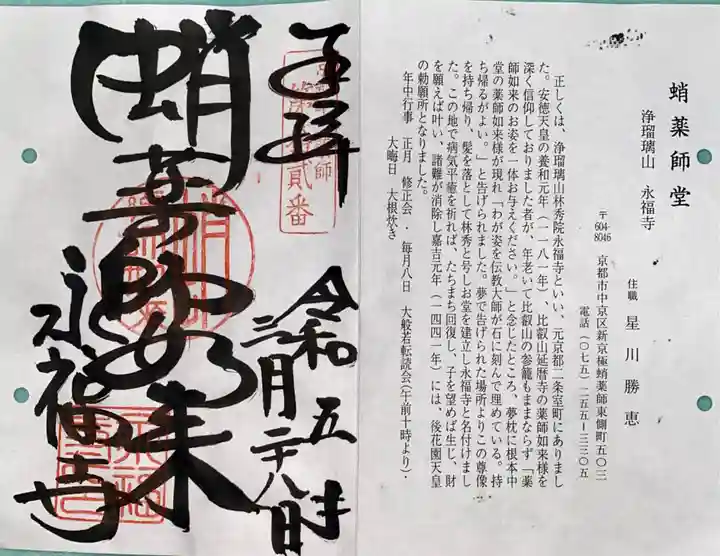 蛸薬師堂
浄瑠璃山 永福寺
住職 星川勝恵
〒604-8046 京都市中京区新京極蛸薬師東側町五〇三
電話(〇七五)二五五-三三〇五
正しくは、浄瑠璃山林秀院永福寺といい、元京都二条室町にありまし
た。安徳天皇の養和元年(一一八一年)、比叡山延暦寺の薬師如来様を
深く信仰しておりました者が、年老いて比叡山の参籠もままならず「薬
師如来のお姿を一体お与えください。」と念じたところ、夢枕に根本中
堂の薬師如来様が現れ「わが姿を伝教大師が石に刻んで埋めている。持
ち帰るがよい。」と告げられました。夢で告げられた場所よりこの尊像
を持ち帰り、髪を落として林秀と号しお堂を建立し永福寺と名付けまし
た。この地で病気平癒を祈れば、たちまち回復し、子を望めば生じ、財
を願えば叶い、諸難が消除し嘉吉元年(一四四一年)には、後花園天皇
の勅願所となりました。
年中行事 正月 修正会・毎月八日 大般若転読会(午前十時より)・
大晦日 大根炊き
奉拝
令和五年
三月二十八日
蛸薬師如来
永福寺